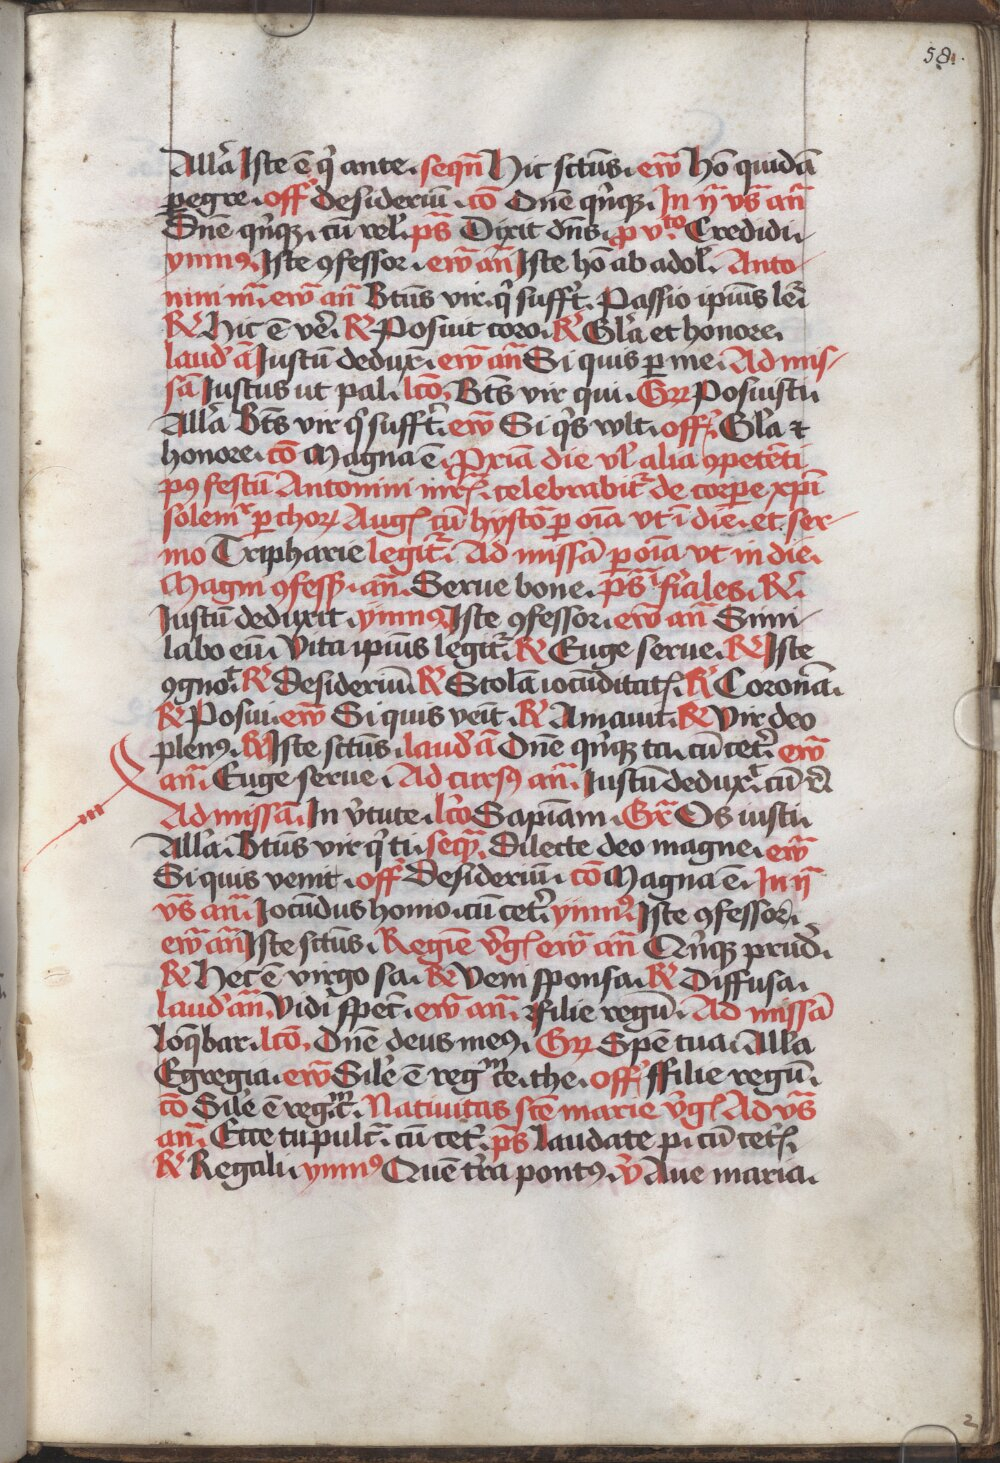 58.
Allā Iste ē q̇ ante. seqn̄ Hic sctūs. ew̄ Hō quidā
pegre. off̄ Desideriū. cō Dnē qn̊qꝫ. In ij vs̄ an̄
Dnē qn̊qꝫ. cū rel'. ps̄ Dixit dn̄s. p v.to Credidi.
ymn9. Iste ꝯfessor. ew̄ an̄ Iste hō ab adol'. Anto
nini m̄. ew̄ an̄ Btūs vir. q̇ sufft̄. Passio ipīus lēr
R̸ Hic ē vēr. R̸ Posuit coro. R̸ Gl'a et honore.
laud' ā Iustū dedux̄. ew̄ an̄ Si quis p me. Ad mis
sā Iustus ut pal. lcō. Bt̄s vir qui. Gr̄ Posuisti
Allā Bt̄s vir q̇ sufft̄. ew̄ Si q̊s vult. off̄. Gl'a ⁊
honore. cō Magna ē. Pxiā die vl' alia ꝯpetēti
p9 festū Antonini mr̄. celebrabit̄ de corpe xp̄i
solemr̄ p chorꝝ Aug cū hystō p oīa vt ī die. et ser
mo Tripharie legit̄. Ad missā p oīa vt in die.
Magni ꝯfess. an̄. Serue bone. ps̄ fīales. R̸.
Iustū deduxit. ymn9. Iste ꝯfessor. ew̄ an̄ Simi
labo eū. Vita ipīus legit̄. R̸ Euge serue. R̸ Iste
ꝯgnot. R̸ Desideriū R̸ Stola iocūditat. R̸ Coronā.
R̸ Posui. ew̄ Si quis veīt. R̸ Amauit. R̸ Vir deo
plen9. R̸ Iste sctūs. laud' ā Dnē qn̊qꝫ ta. cū cet̄. ew̄
an̄. Euge serue. Ad curs9 an̄. Iustū dedux̄t. cū
Ad missā. In v̊tute. lcō Sapīam. Gr̄ Os iusti.
Allā. Btūs vir q̇ ti. seq̄. Dilecte deo magne. ew̄
Si quis venit. off̄ Desideriū. cō Magna ē. In ij
vs̄ an̄. Iocūdus homo. cū cet̄. ymn9. Iste ꝯfessor.
ew̄ an̄ Iste sctūs. Regīe v̊g ew̄ an̄ Qn̊qꝫ prud'.
R̸ Hec ē virgo sa. R̸ Veni sponsa. R̸ Diffusa.
laud' an̄. Vidi spet̄. ew̄ an̄. ffilie regū. Ad missā
loq̄bar. lcō. Dnē deus me9. Gr̄ Spē tua. Allā
Egregia. ew̄ Sil'e ē regm ce. the. off̄ ffilie regū.
cō Sil'e ē regm c̄. Nativitas scē marie v̊g Ad vs̄
an̄. Ecce tu pulcr̄. cū cet̄. ps̄ Laudate p. cū cet̄.
R̸ Regali. ymn9 Quē t̊ra pont9. v̊ Aue maria.
2